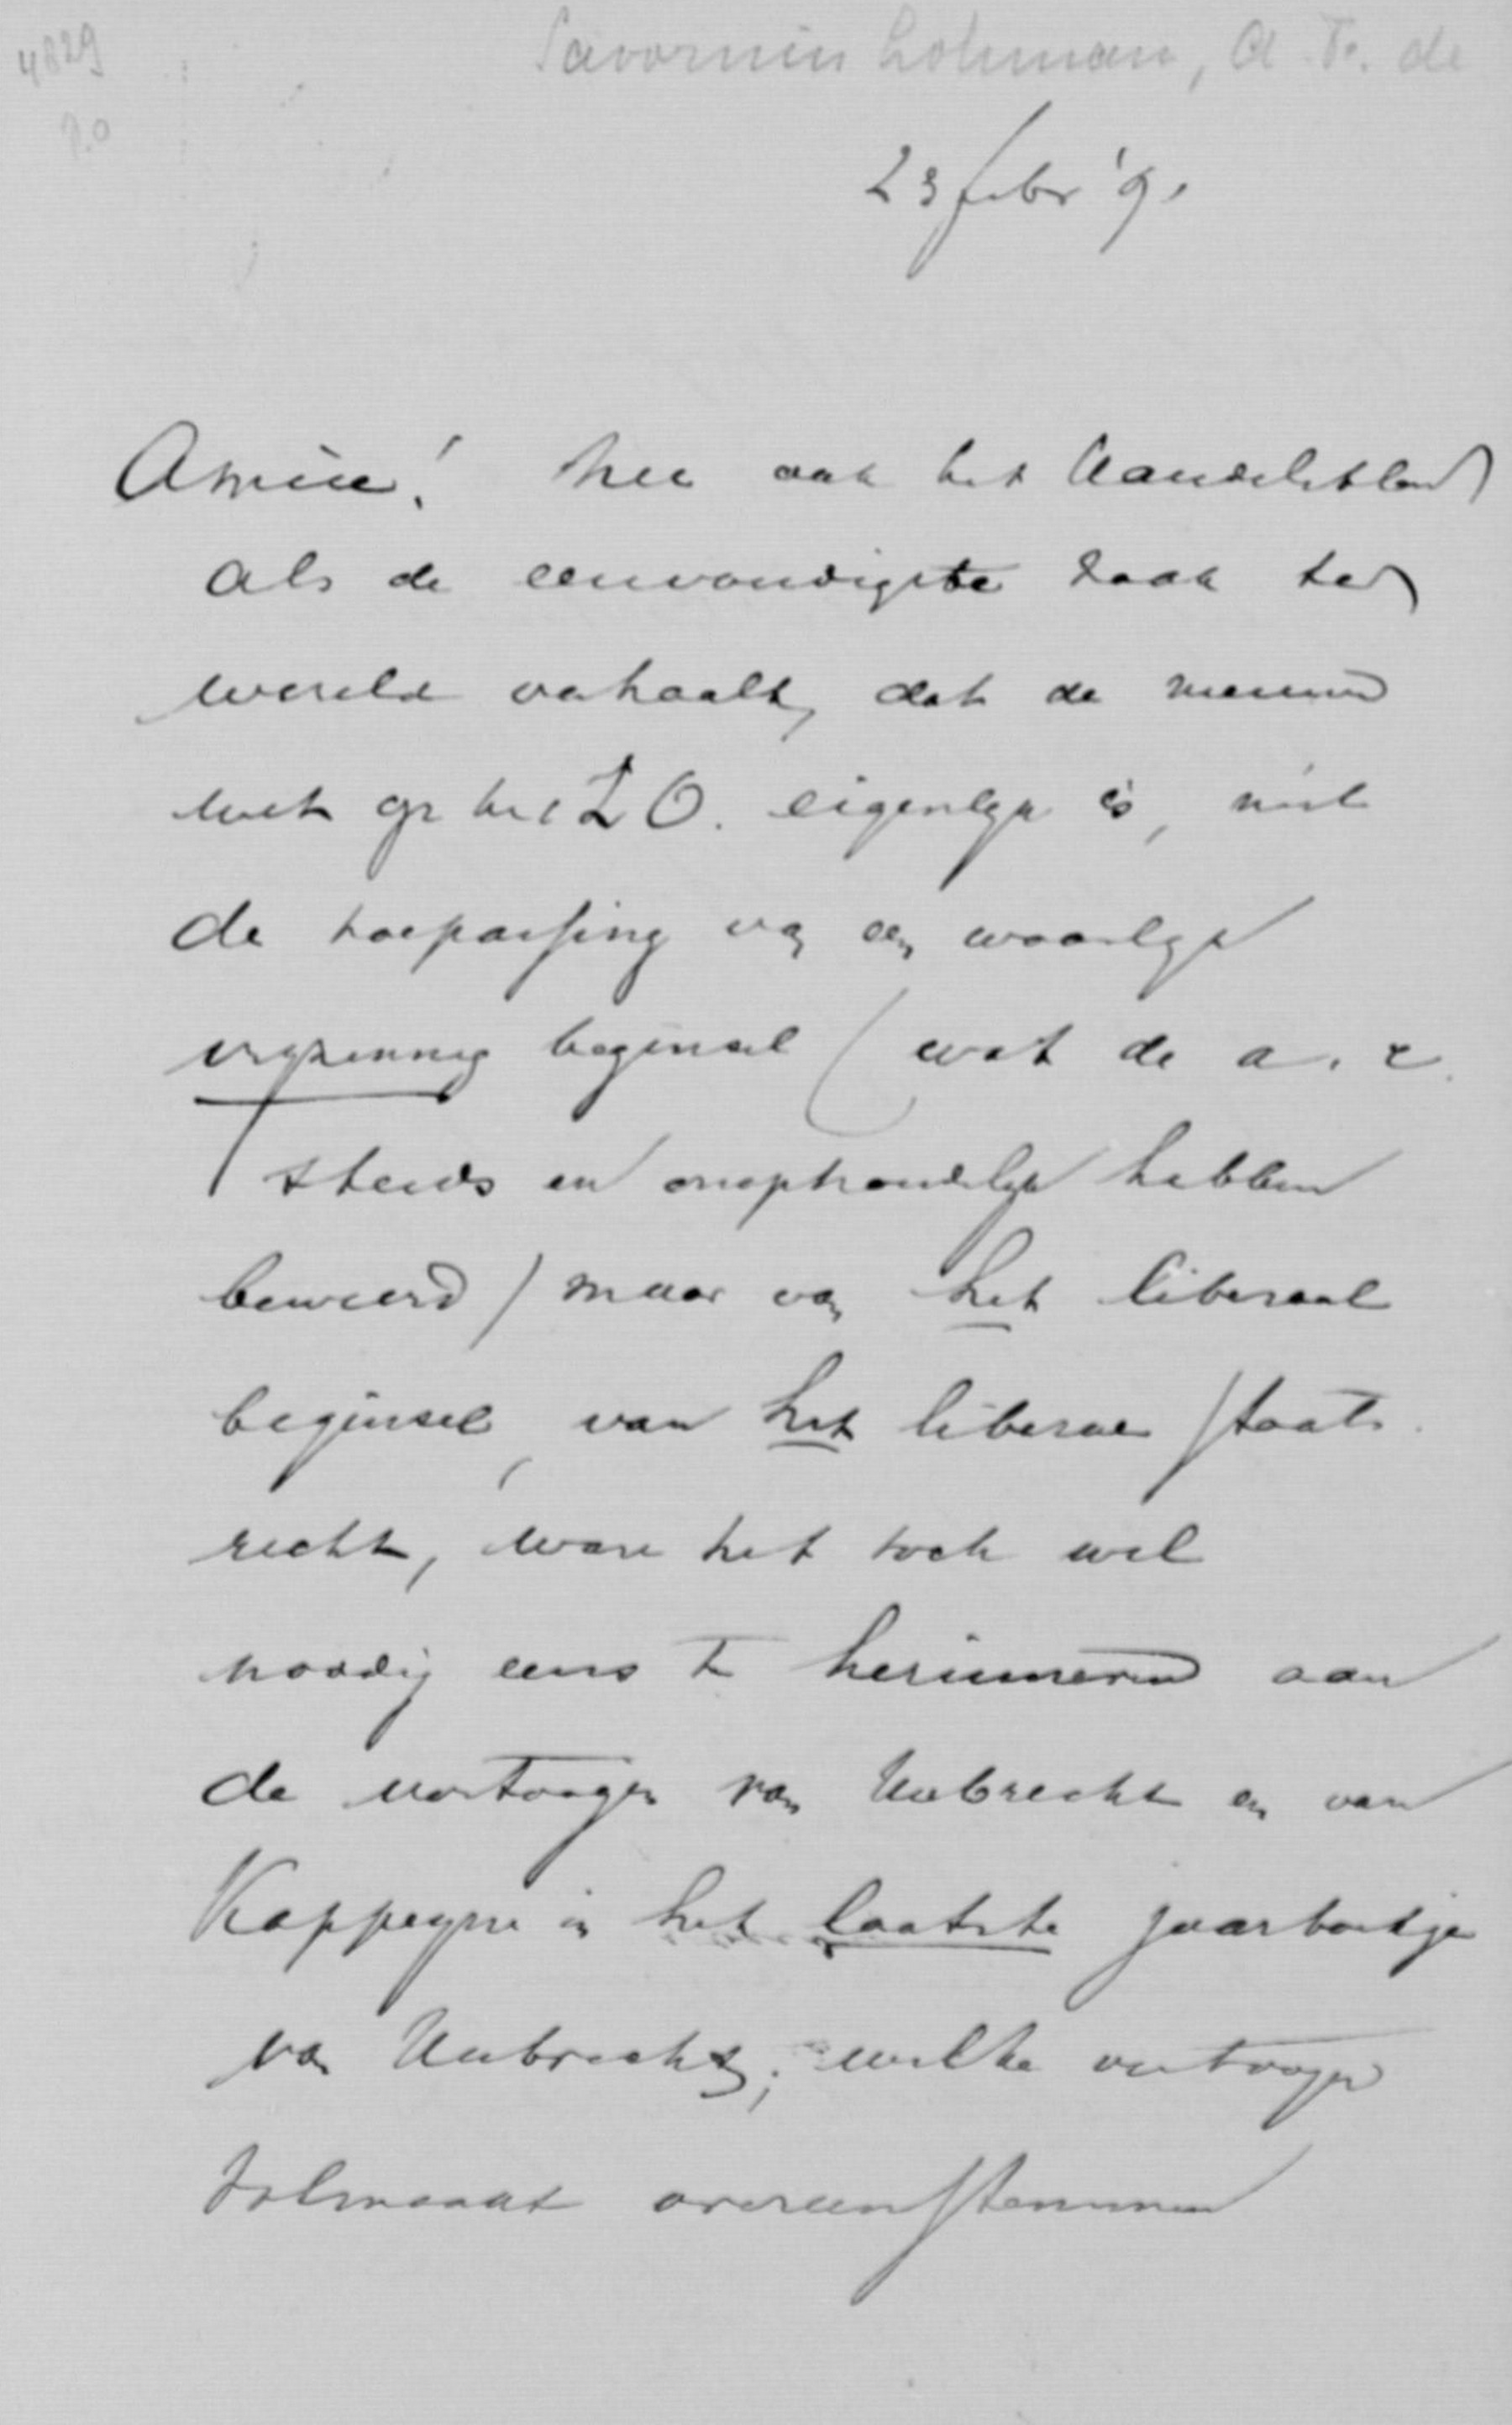 4829
Savornin Lohman, A. F. de
23 febr '91
Amice! Nu ook het Handelsblad
als de eenvoudigste zaak ter
wereld verhaalt, dat de nieuwe
wet op het L O. eigenlyk is, niet
de toepassing van een waarlyk
vryzinnig beginsel (wat de a. r.
steeds en onophoudelyk hebben
beweerd) maar van het liberaal
beginsel, van het liberae staats
recht, ware het toch wel
noodig eens te herinneren aan
de vertoogen van Hubrecht en van
Kappeyne in het laatste jaarboekje
van Hubrecht; welke vertoogen
volmaakt overeenstemmen